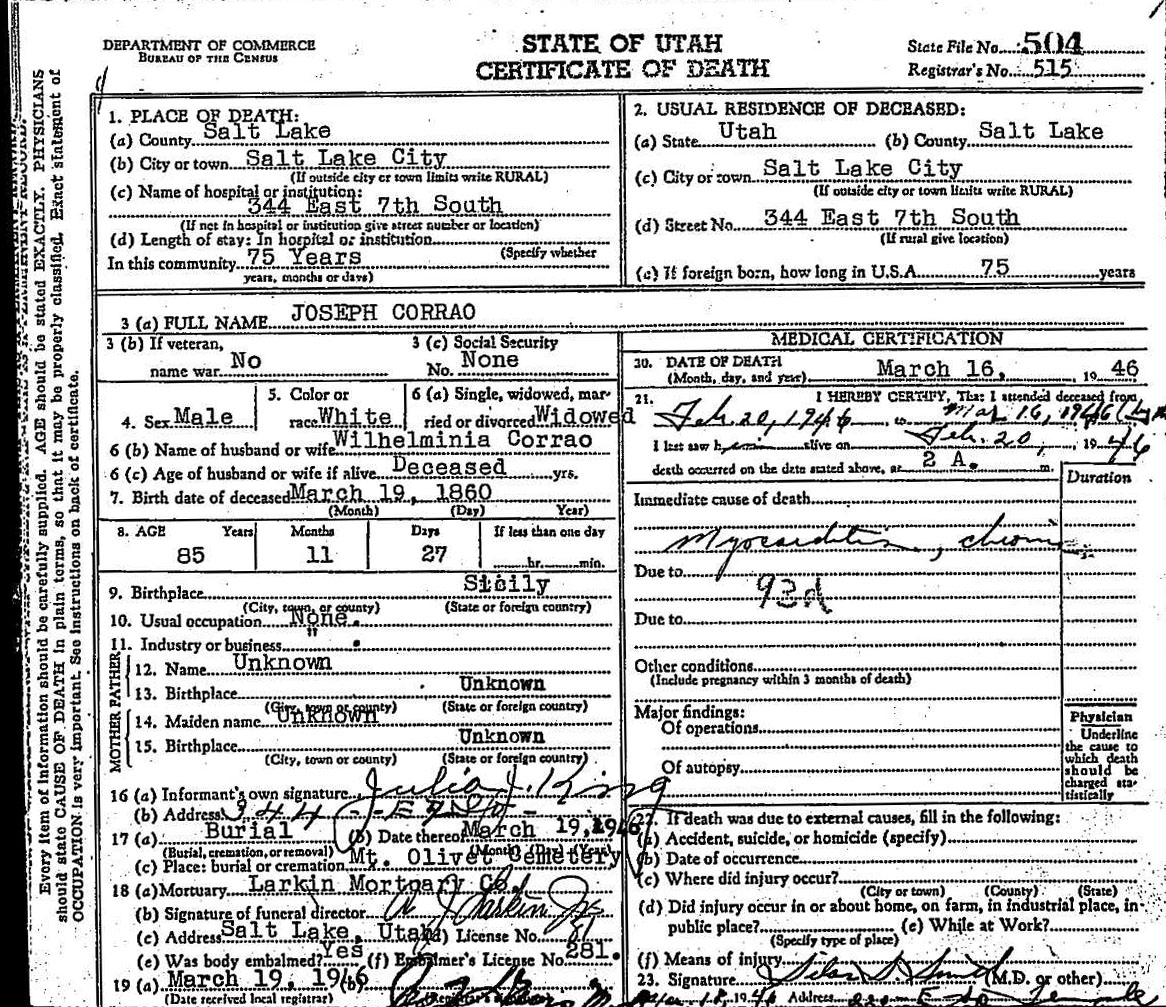 DEPARTMENT OF COMMERCE
BUREAU OF THE CENSUS
STATE OF UTAH
CERTIFICATE OF DEATH
State File No. 504
Registrar's No. 515
Every item of information should be carefully supplied. AGE should be stated EXACTLY. PHYSICIANS
should state CAUSE OF DEATH in plain terms, so that it may be properly classified. Exact statement of
OCCUPATION is very important. See instructions on back of certificate.
1. PLACE OF DEATH:
(a) County Salt Lake
(b) City or town Salt Lake City
(If outside city or town limits write RURAL)
(c) Name of hospital or institution:
344 East 7th South
(If not in hospital or institution give street number or location)
(d) Length of stay: In hospital or institution
(Specify whether
In this community 75 Years
years, months or days)
2. USUAL RESIDENCE OF DECEASED:
(a) State Utah (b) County Salt Lake
(c) City or town Salt Lake City
(If outside city or town limits write RURAL)
(d) Street No. 344 East 7th South
(If rural give location)
(e) If foreign born, how long in U.S.A. 75 years
3 (a) FULL NAME JOSEPH CORRAO
3 (b) If veteran,
name war No
3 (c) Social Security
No. None
4. Sex Male
5. Color or
race White
6 (a) Single, widowed, mar-
ried or divorced Widowed
6 (b) Name of husband or wife Wilhelminia Corrao
6 (c) Age of husband or wife if alive Deceased yrs.
7. Birth date of deceased March 19, 1860
(Month) (Day) Year)
8. AGE Years Months Days If less than one day
85 11 27 hr. min.
9. Birthplace Sicily
(City, town, or county) (State or foreign country)
10. Usual occupation None.
11. Industry or business " .
FATHER
12. Name Unknown
13. Birthplace Unknown
(City, town or county) (State or foreign country)
MOTHER
14. Maiden name Unknown
15. Birthplace Unknown
(City, town or county) (State or foreign country)
16 (a) Informant's own signature Julia J. King
(b) Address 344 - E 7 So -
17 (a) Burial (b) Date thereof March 19, 1946
(Burial, cremation, or removal) (Month) (Day) (Year)
(c) Place: burial or cremation Mt. Olivet Cemetery
18 (a) Mortuary Larkin Mortuary Co.
(b) Signature of funeral director Larkin
(c) Address Salt Lake, Utah (d) License No.
(e) Was body embalmed? Yes (f) Embalmer's License No. 281.
19 (a) March 19, 1946 (b)
(Date received local registrar)
MEDICAL CERTIFICATION
20. DATE OF DEATH
(Month, day, and year) March 16, 19 46
21. I HEREBY CERTIFY, That I attended deceased from
Feb. 20, 1946, to Mar 16, 1946
I last saw him alive on Feb. 20, 19 46
death occurred on the date stated above, at 2 A. m.
Duration
Immediate cause of death
Myocarditis, chronic
Due to
93d
Due to
Other conditions
(Include pregnancy within 3 months of death)
Major findings:
Of operations
Of autopsy
Physician
Underline
the cause to
which death
should be
charged sta-
tistically
22. If death was due to external causes, fill in the following:
(a) Accident, suicide, or homicide (specify)
(b) Date of occurrence
(c) Where did injury occur?
(City or town) (County) (State)
(d) Did injury occur in or about home, on farm, in industrial place, in
public place? (e) While at Work?
(Specify type of place)
(f) Means of injury
23. Signature Silas S Smith (M.D. or other)
Mar 18, 1946 Address